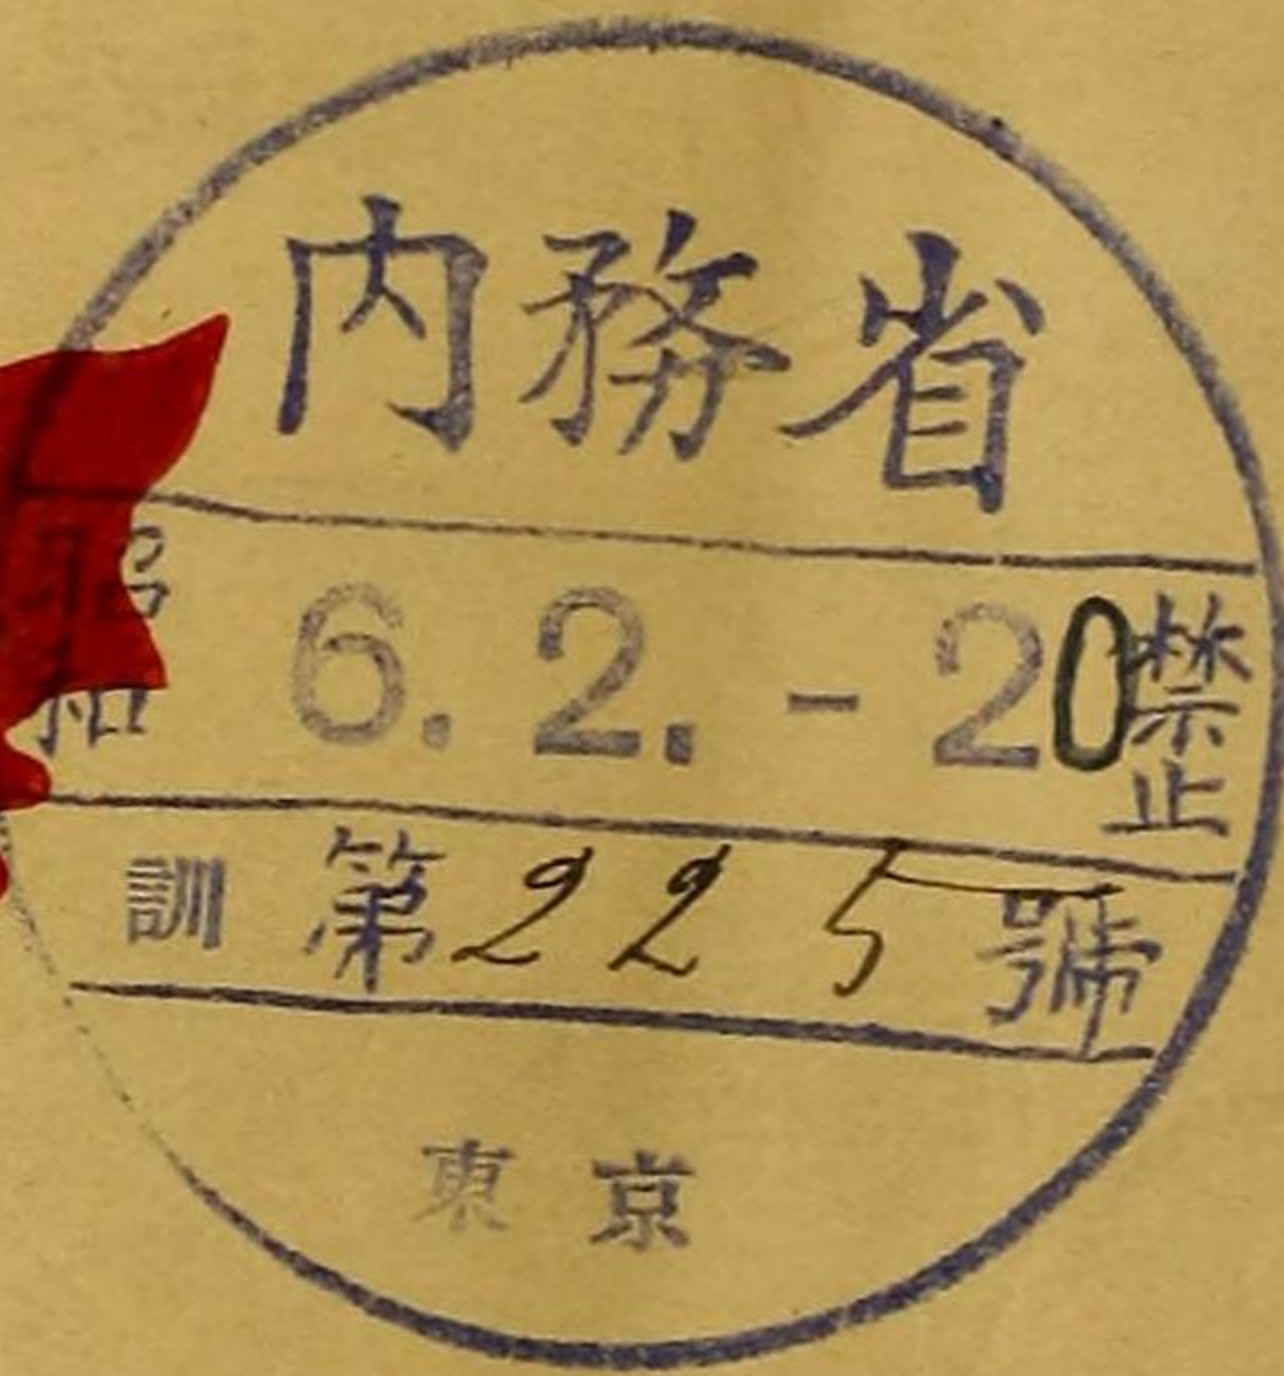 内務省
昭和 6. 2. -20 禁止
訓 第225號
東京